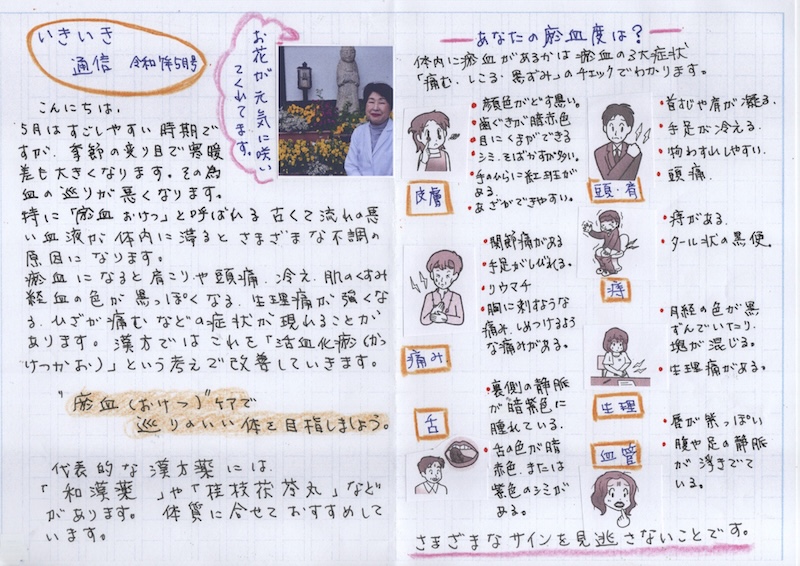 いきいき
通信 令和7年5月号
お花が元気に咲い
てくれてます。
こんにちは、
5月はすごしやすい時期で
すが、季節の変り目で寒暖
差も大きくなります。その為
血の巡りが悪くなります。
特に「瘀血 おけつ」と呼ばれる 古くて流れの悪
い血液が体内に滞るとさまざまな不調の
原因になります。
瘀血になると肩こりや頭痛、冷え、肌のくすみ
経血の色が黒っぽくなる、生理痛が強くな
る、ひざが痛むなどの症状が現れることが
あります。漢方ではこれを「活血化瘀(かっ
けつかお)」という考えで改善していきます。
"瘀血(おけつ)"ケアで
巡りのいい体を目指しましょう。
代表的な漢方薬には、
「和漢薬 」や「桂枝茯苓丸」など
があります。 体質に合せておすすめして
います。
あなたの瘀血度は?
体内に瘀血があるかは瘀血の3大症状
「痛む、しこる、黒ずみ」のチェックでわかります。
皮膚
• 顔色がどす黒い。
• 歯ぐきが暗赤色
• 目にくまができる
• シミ、そばかすが多い。
• 手のひらに紅斑が
ある。
• あざができやすい。
頭・肩
• 首すじや肩が凝る。
• 手足が冷える。
• 物わすれしやすい。
• 頭痛。
痛み
• 関節痛がある
• 手足がしびれる。
• リウマチ
• 胸に刺すような
痛み、しめつけるよう
な痛みがある。
痔
• 痔がある。
• タール状の黒便。
生理
• 月経の色が黒
ずんでいたり、
塊が混じる。
• 生理痛がある。
舌
• 裏側の静脈
が暗紫色に
腫れている。
• 舌の色が暗
赤色、または
紫色のシミが
ある。
血管
• 唇が紫っぽい
• 腹や足の静脈
が浮きでて
いる。
さまざまなサインを見逃さないことです。